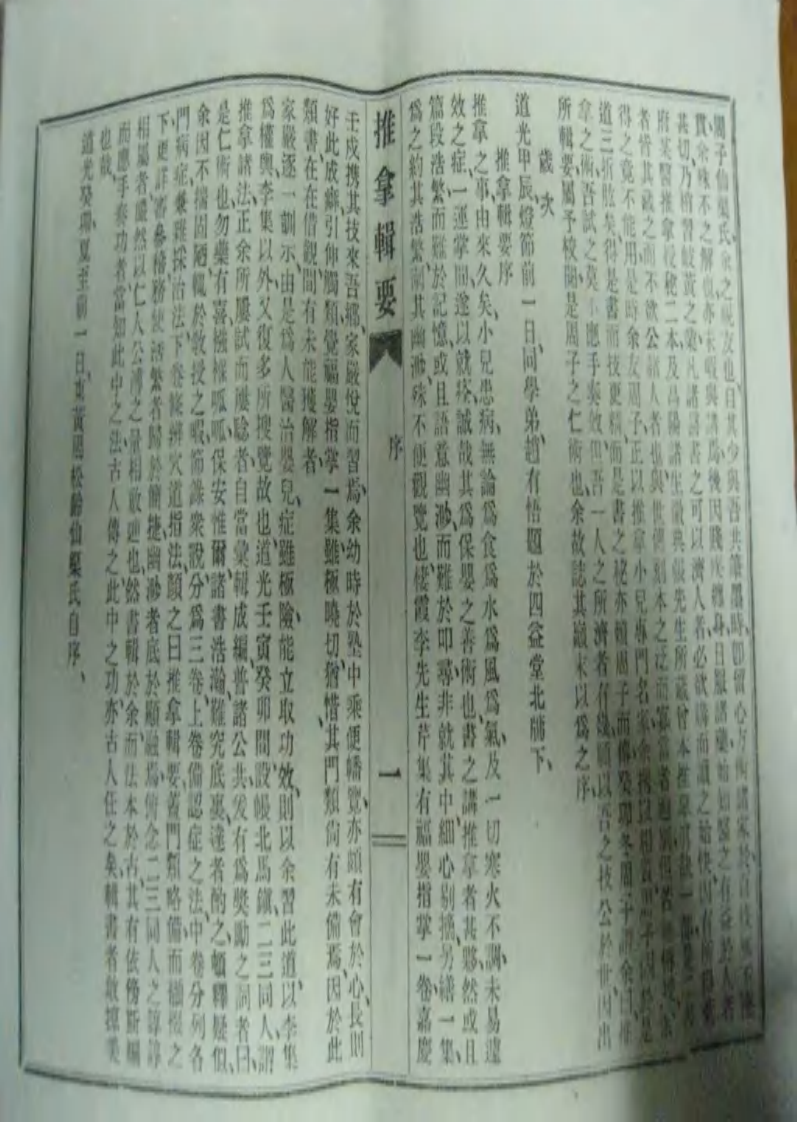 周子仙渠氏余之硯友也自其少與吾共筆墨時即留心方術諸家於
貫余殊不之解也亦未暇與講焉後因賤疾纏身日服諸藥始知醫之有益於人者
甚切乃稍習岐黃之業凡諸醫書之可以濟人者必欲購而讀之始快
府某醫推拿
者惜其藏之而不欲公諸人者也與世俗刻本
得之竟不能用是時余友周子正以推拿小兒專門名家余
道三折肱矣得是書而技更精而是書之秘亦賴周子而傳癸卯冬周子謂余曰推
拿之術吾試之莫不應手奏效但吾一人之所濟者有幾願以吾之技公於世因出
所輯要屬予校閱是周子之仁術也余故誌其巔末以為之序
歲次
道光甲辰燈節前一日同學弟趙有悟題於四益堂北牖下、
推拿輯要序
推拿之事由來久矣、小兒患病、無論爲食爲水爲風爲氣、及一切寒火不調、未易遽
效之症、一運掌間、遂以就痊、誠哉其爲保嬰之善術也、書之講推拿者甚夥、然或且
篇段浩繁而難於記憶、或且語意幽渺、而難於叩尋、非就其中、細心剔搔、另繕一集、
爲之約其浩繁、剖其幽渺、殊不便觀覽也、棲霞李先生芹集有福嬰指掌一卷、嘉慶
推拿輯要
序
一
壬戌攜其技來吾鄉、家嚴悅而習焉、余幼時於塾中乘便繙覽、亦頗有會於心、長則
好此成癖、引伸觸類、覺福嬰指掌一集、雖極曉切、猶惜其門類尚有未備焉、因於此
類書在在借觀、間有未能獲解者、
家嚴逐一訓示、由是爲人醫治嬰兒、症雖極險、能立取功效、則以余習此道、以李集
爲權輿、李集以外、又復多所搜覽故也、道光壬寅癸卯間、設帳北馬鎮、二三同人、謂
推拿諸法、正余所屢試而屢騐者、自當彙輯成編、普諸公共、友有爲獎勵之詞者曰、
是仁術也、勿藥有喜、襁褓呱呱、保安惟爾、諸書浩瀚、難究底裏、達者酌之、頓釋疑似、
余因不揣固陋、輒於教授之暇、節錄衆說、分爲三卷、上卷備認症之法、中卷分列各
門病症、兼雜採治法、下卷能辨穴道指法、顏之曰推拿輯要、蓋門類略備、而襁褓之
下、更詳審參稽、務使浩繁者歸於簡捷、幽渺者底於顯融焉、俯念二三同人之諄諄
相屬者、儼然以仁人公溥之量相敦迪也、然書輯於余、而法本於古、其有依傍斯編
而應手奏功者、當知此中之法、古人傳之、此中之功、亦古人任之矣、輯書者敢掠美
也哉、
道光癸卯夏至前一日、東黃周松齡仙渠氏自序、